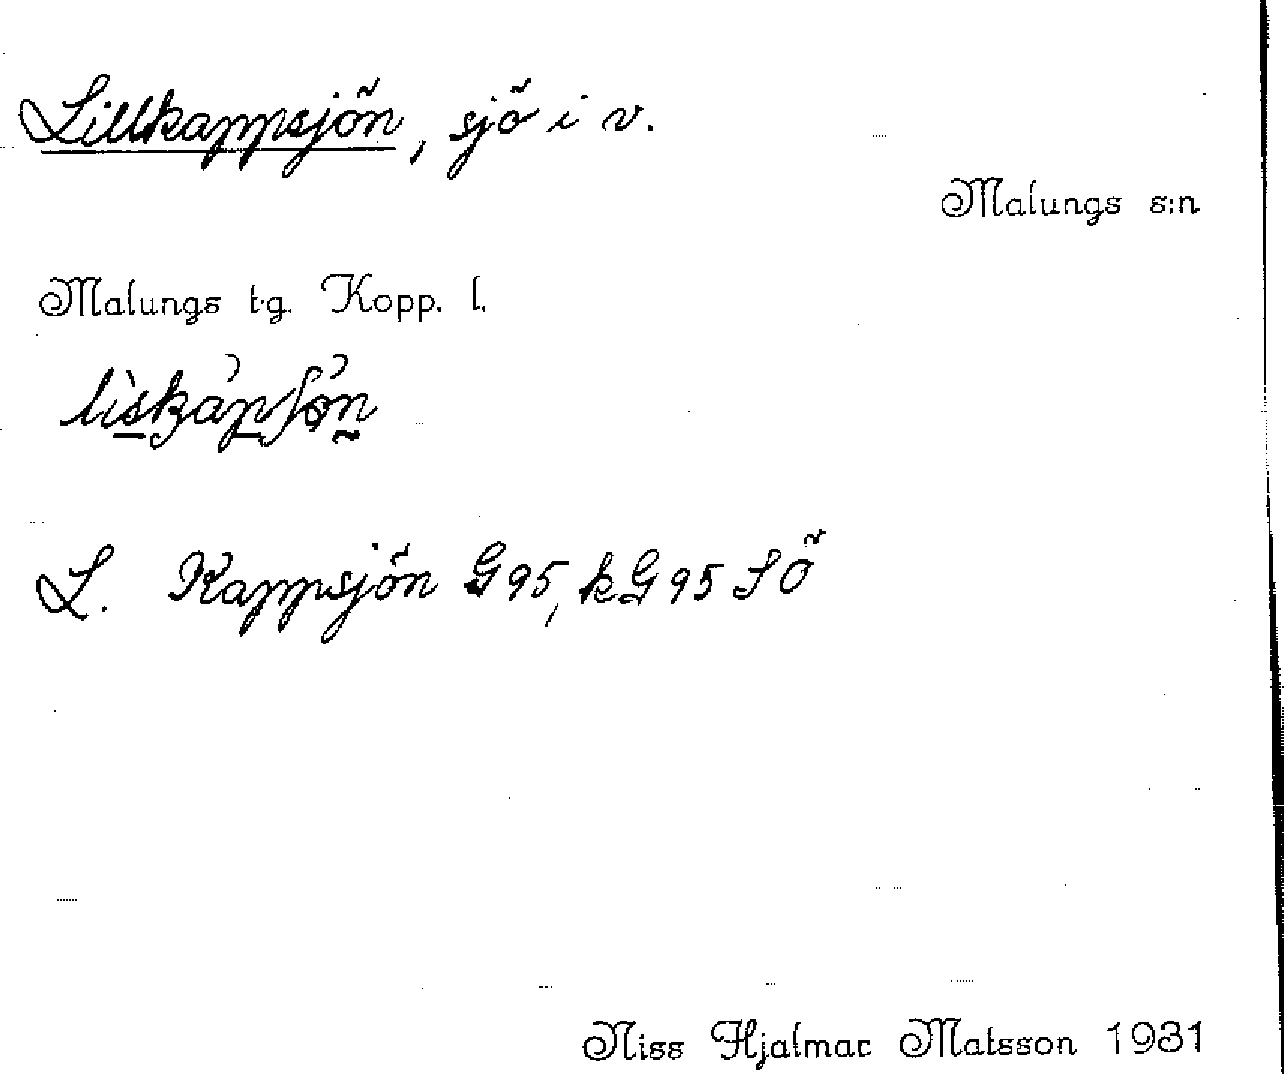 Lillkappsjön, sjö i v.
Malungs s:n
Malungs t.g. Kopp. l.
L. Kappsjön G95, kG95 SÖ
Niss Hjalmar Matsson 1931